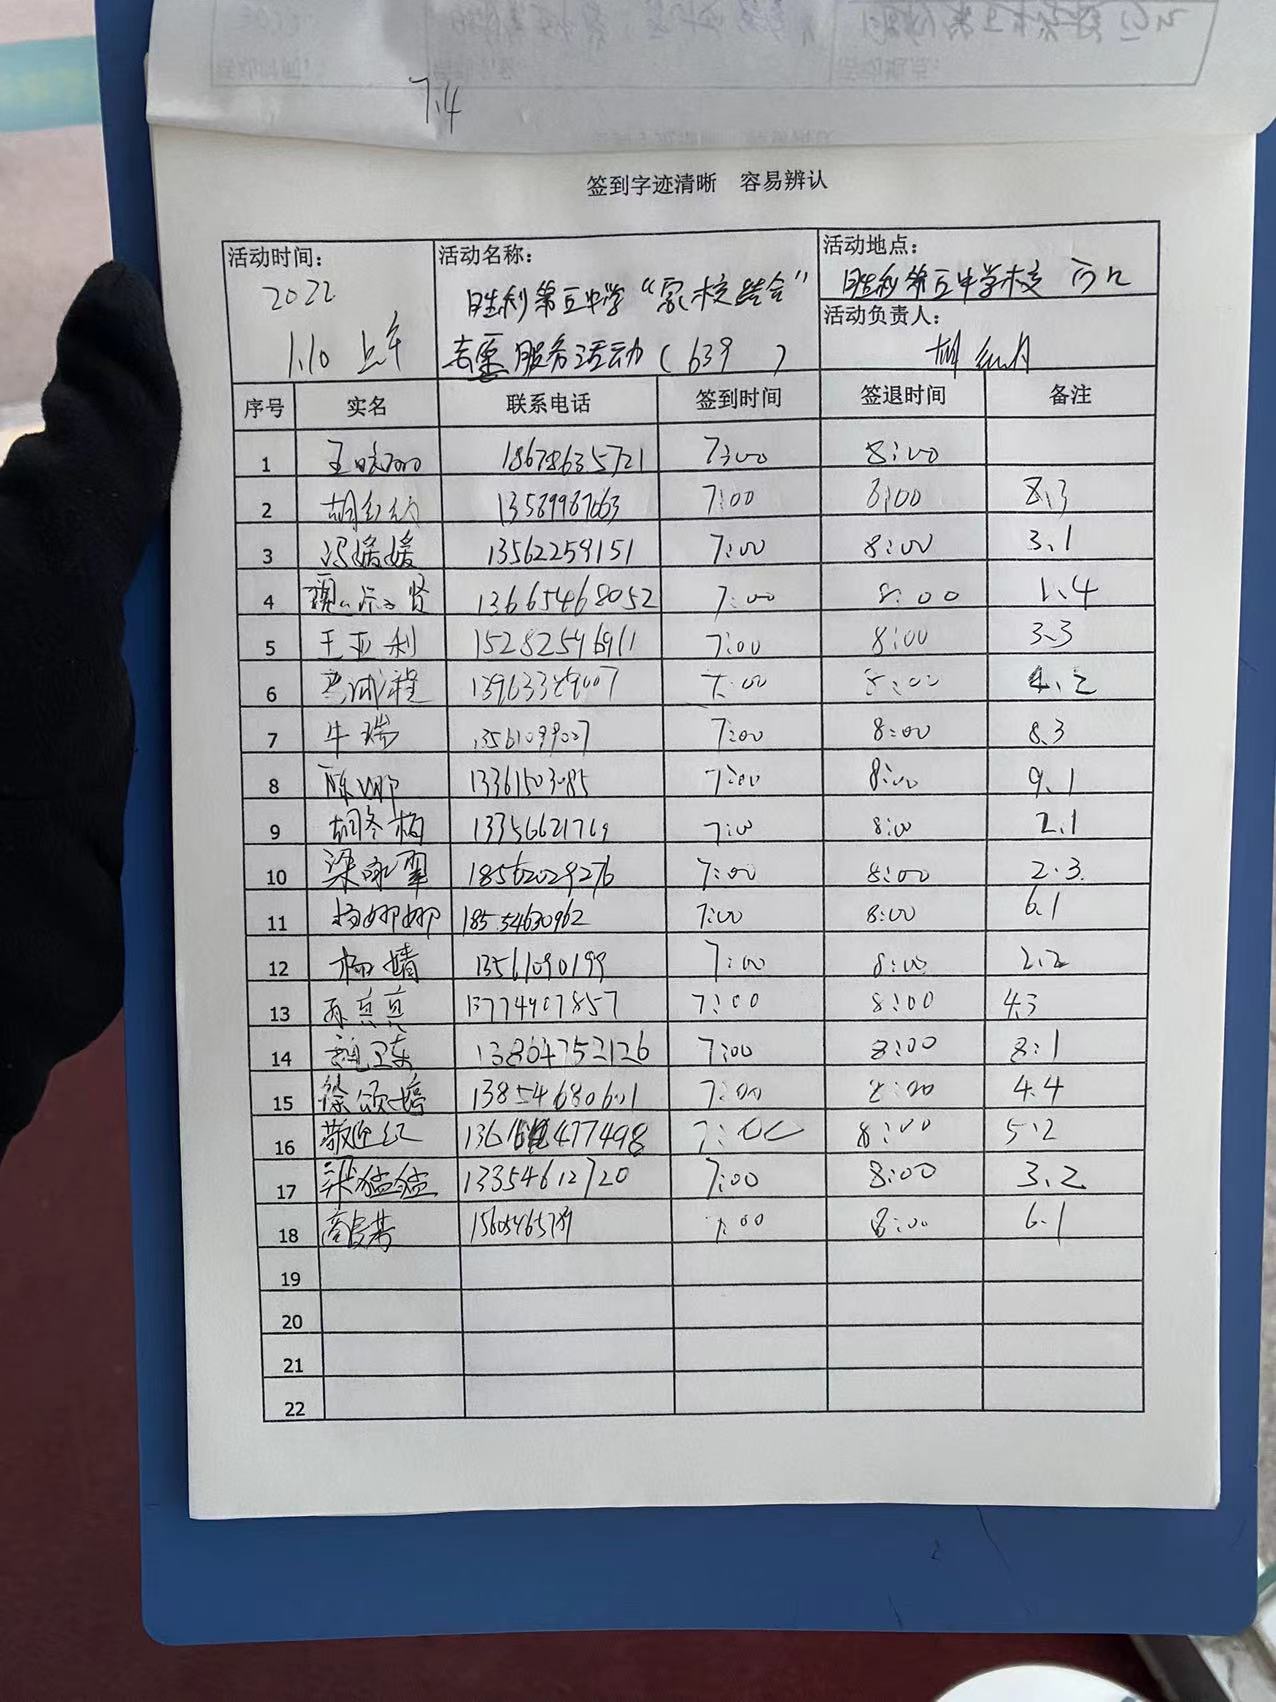 7.4
签到字迹清晰 容易辨认
活动时间： 2022 1.10 上午
活动名称： 胜利第五中学“家校结合” 志愿服务活动（639 ）
活动地点： 胜利第五中学校 门口
活动负责人： 胡
序号 实名 联系电话 签到时间 签退时间 备注
1 王 18678635721 7:00 8:00
2 胡 7:00 8:00 8.3
3 冯媛媛 13562259151 7:00 8:00 3.1
4 贤 13665468052 7:00 8:00 1.4
5 王亚利 7:00 8:00 3.3
6 程 7:00 8:00 4.2
7 牛瑞 7:00 8:00 8.3
8 陈娜 13361503085 7:00 8:00 9.1
9 胡冬梅 7:00 8:00 2.1
10 梁 18562029276 7:00 8:00 2.3
11 杨娜娜 18554630962 7:00 8:00 6.1
12 杨婧 13561090199 7:00 8:00 2.2
13 孙真真 7:00 8:00 4.3
14 赵卫东 13864752126 7:00 8:00 8:1
15 徐颂 13854680601 7:00 8:00 4.4
16 7:00 8:00 5.2
17 梁猛猛 13354612720 7:00 8:00 3.2
18 7:00 8:00 6.1
19
20
21
22